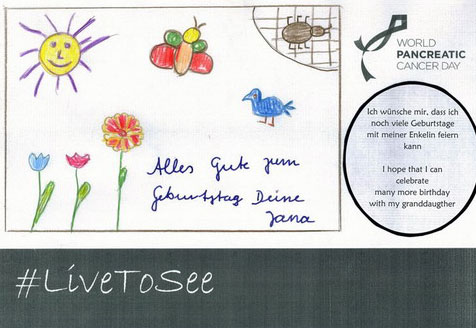 WORLD
PANCREATIC
CANCER DAY
Alles Gute zum
Geburtstag Deine
Jana
Ich wünsche mir, dass ich
noch viele Geburtstage
mit meiner Enkelin feiern
kann
I hope that I can
celebrate
many more birthday
with my granddaugther
#LiveToSee